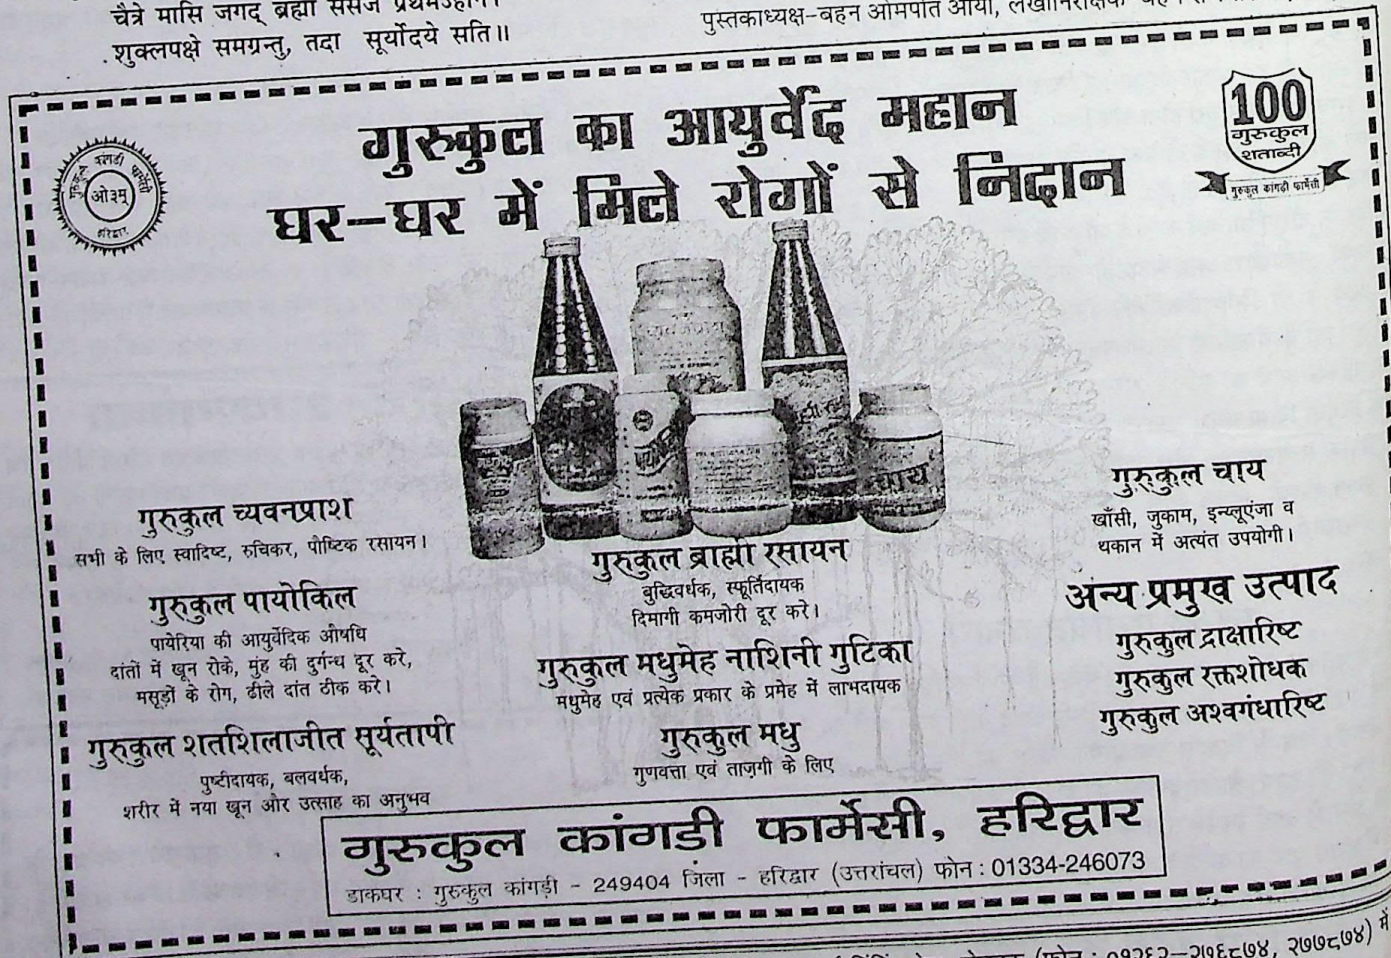 चैत्रे मासि जगद् ब्रह्मा ससर्ज प्रथमेऽहनि।
शुक्लपक्षे समग्रन्तु, तदा सूर्योदये सति॥
पुस्तकाध्यक्ष-बहन ओमपति आर्या,
गुरुकुल कांगडी फार्मेसी
ओ३म्
हरिद्वार
गुरुकुल का आयुर्वेद महान
घर-घर में मिले रोगों से निदान
100
गुरुकुल
शताब्दी
गुरुकुल कांगड़ी फार्मेसी
च्यवनप्राश
चाय
गुरुकुल च्यवनप्राश
सभी के लिए स्वादिष्ट, रुचिकर, पौष्टिक रसायन।
गुरुकुल पायोकिल
पायेरिया की आयुर्वेदिक औषधि
दांतों में खून रोके, मुंह की दुर्गन्ध दूर करे,
मसूड़ों के रोग, ढीले दांत ठीक करे।
गुरुकुल शतशिलाजीत सूर्यतापी
पुष्टीदायक, बलवर्धक,
शरीर में नया खून और उत्साह का अनुभव
गुरुकुल ब्राह्मी रसायन
बुद्धिवर्धक, स्फूर्तिदायक
दिमागी कमजोरी दूर करे।
गुरुकुल मधुमेह नाशिनी गुटिका
मधुमेह एवं प्रत्येक प्रकार के प्रमेह में लाभदायक
गुरुकुल मधु
गुणवत्ता एवं ताज़गी के लिए
गुरुकुल चाय
खाँसी, जुकाम, इन्फ्लूएंजा व
थकान में अत्यंत उपयोगी।
अन्य प्रमुख उत्पाद
गुरुकुल द्राक्षारिष्ट
गुरुकुल रक्तशोधक
गुरुकुल अश्वगंधारिष्ट
गुरुकुल कांगडी फार्मेसी, हरिद्वार
डाकघर : गुरुकुल कांगड़ी - 249404 जिला - हरिद्वार (उत्तरांचल) फोन : 01334-246073
(फोन : ०१२६२-२७६८७४, २७७८७४) में